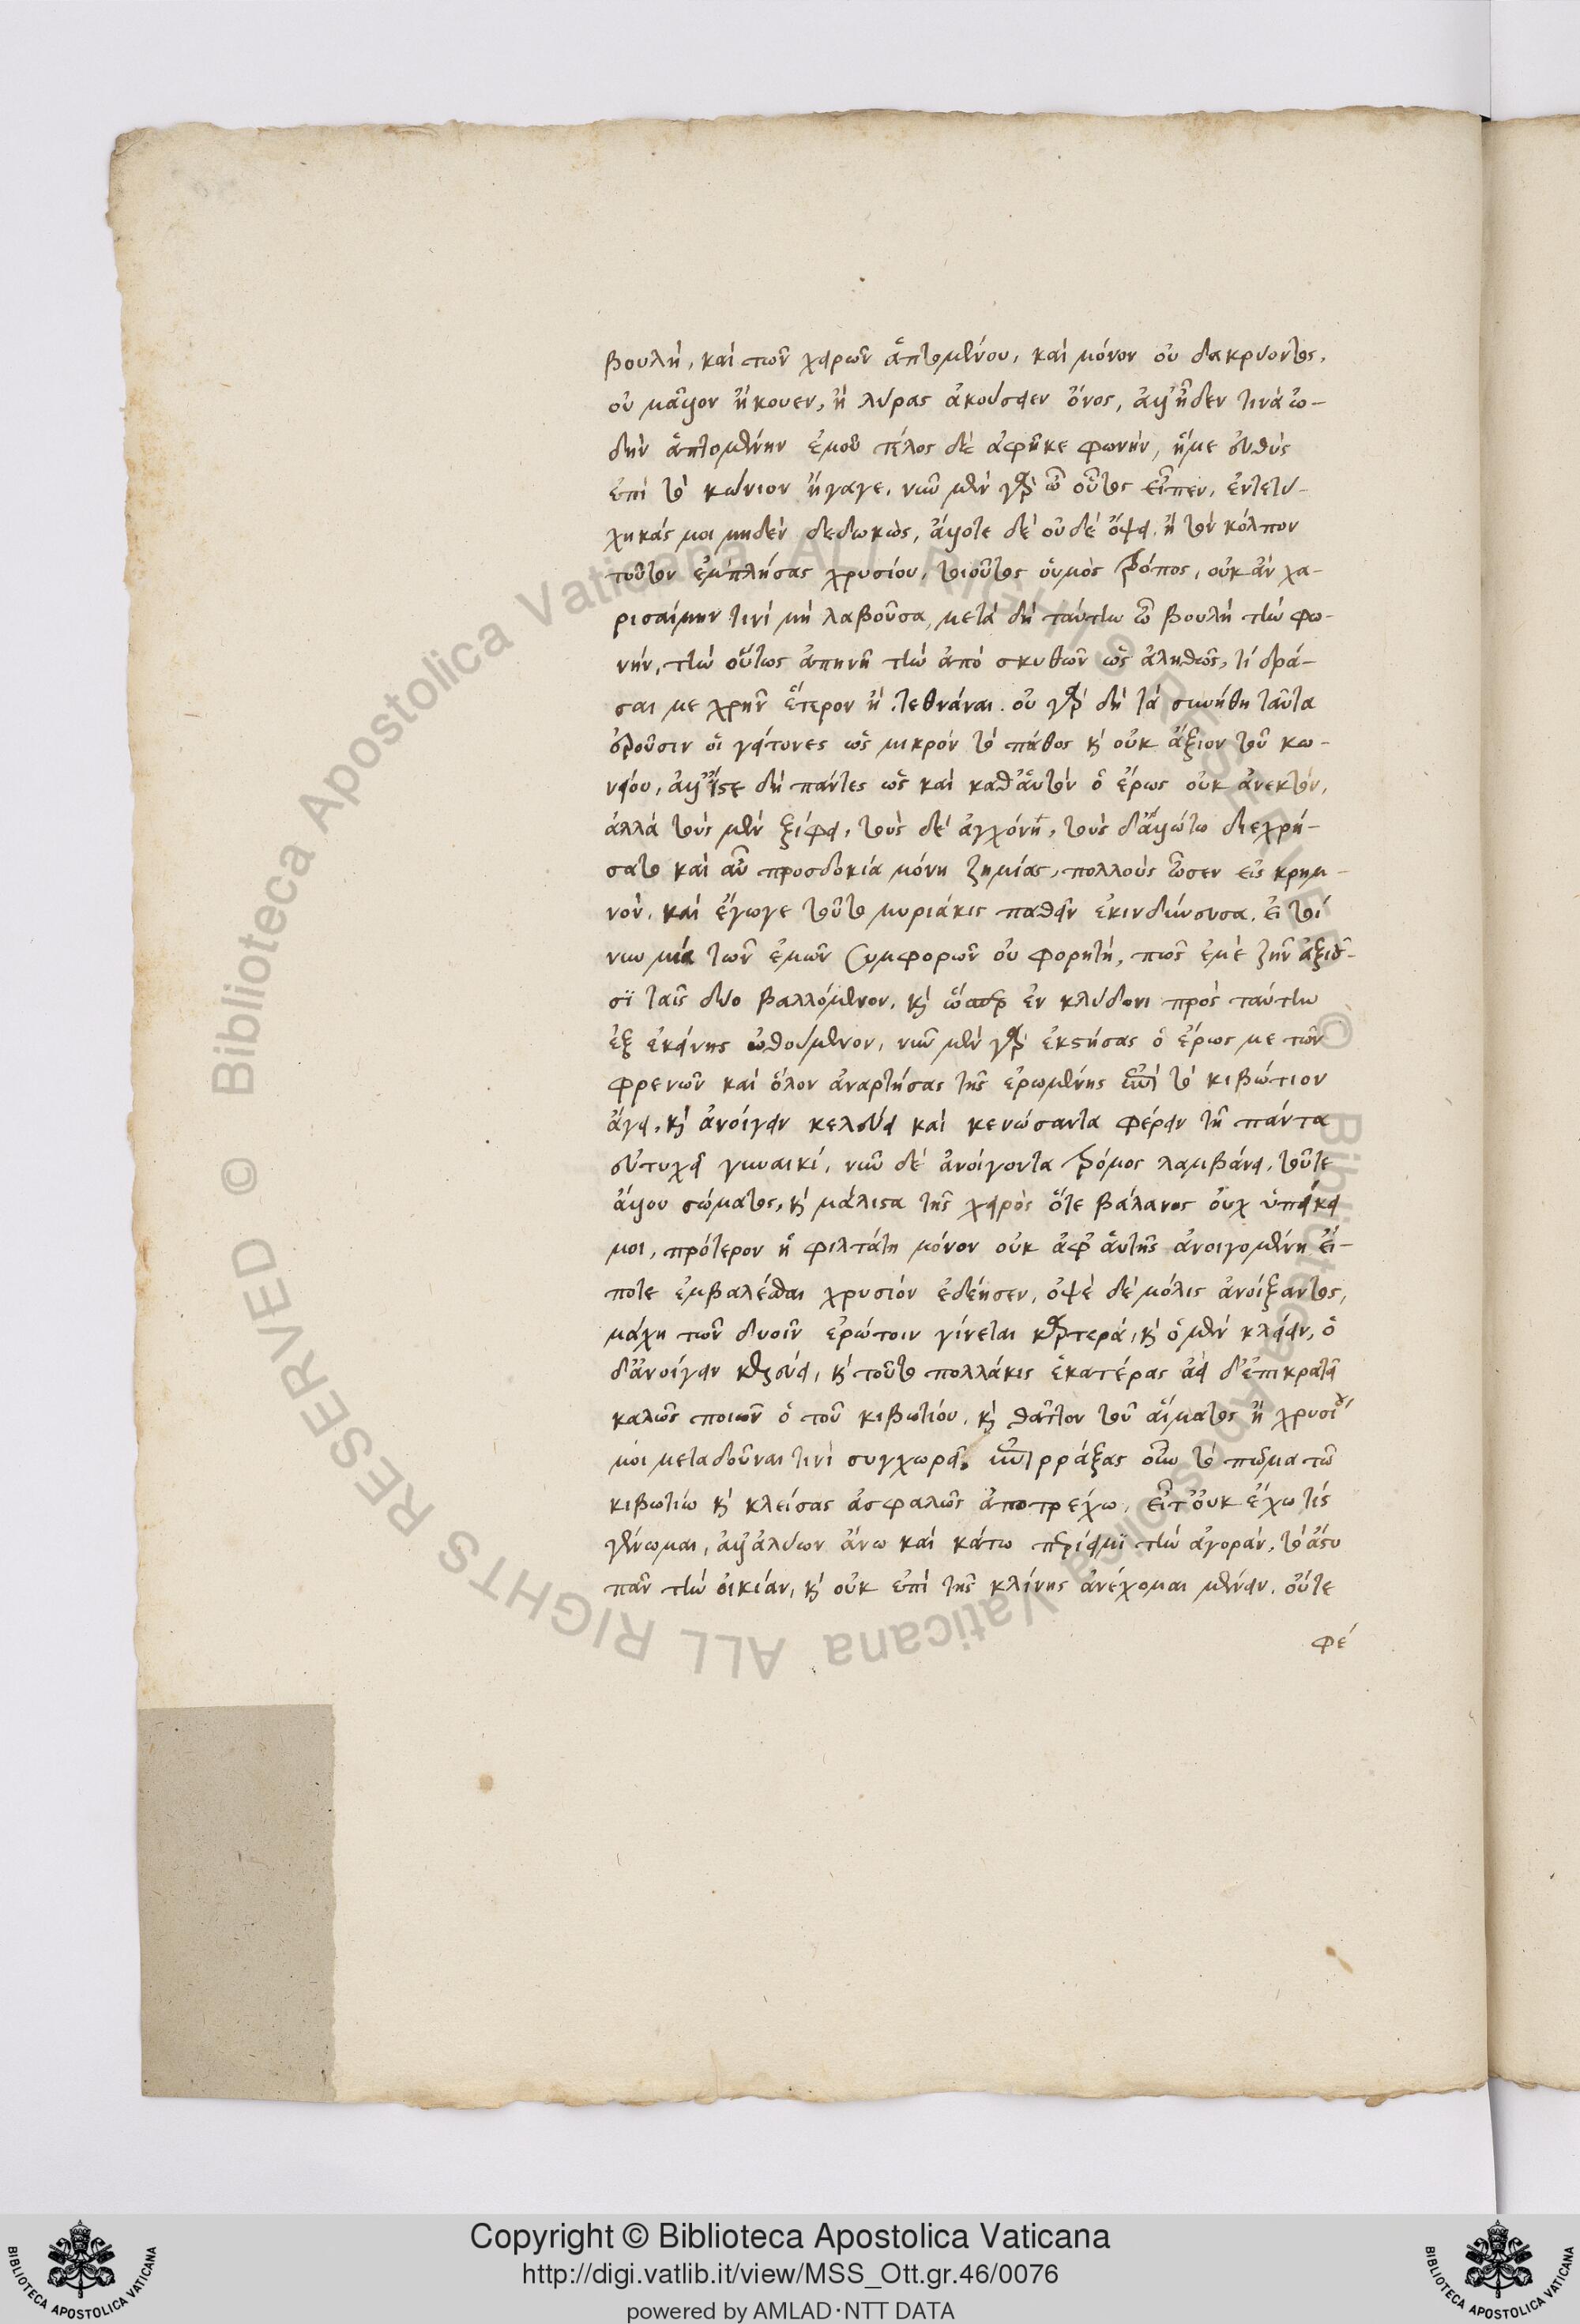 βουλὴ, καὶ τῶν χειρῶν ἁπτομένου, καὶ μόνον οὐ δακρύοντος,
οὐ μᾶλλον ἤκουεν, ἢ λύρας ἀκούσειεν ὄνος, ἀλλ' ᾖδεν τινὰ ὠ-
δὴν ἁπτομένην ἐμοῦ τέλος δὲ ἀφῆκε φωνὴν, ἥ με εὐθὺς
ἐπὶ τὸ κώνιον ἤγαγε, νῦν μὲν γὰρ ὦ οὗτος εἶπεν, ἐντετύ-
χηκάς μοι μηδὲν δεδωκὼς, ἄλλοτε δὲ οὐδὲ ὄψει. ἢ τὸν κόλπον
τοῦτον ἐμπλήσας χρυσίου, τοιοῦτος οὑμὸς τρόπος, οὐκ ἂν χα-
ρισαίμην τινὶ μὴ λαβοῦσα, μετὰ δὴ ταύτην ὦ βουλὴ τὴν φω-
νήν, τὴν οὕτως ἀπηνῆ τὴν ἀπὸ σκυθῶν ὡς ἀληθῶς, τί δρά-
σαι με χρῆν ἕτερον ἢ τεθνάναι. οὐ γὰρ δὴ τὰ συνήθη ταῦτα
ἐροῦσιν οἱ γείτονες ὡς μικρὸν τὸ πάθος καὶ οὐκ ἄξιον τοῦ κω-
νείου, ἀλλ' ἴστε δὴ πάντες ὡς καὶ καθ' αὑτὸν ὁ ἔρως οὐκ ἀνεκτόν,
ἀλλὰ τοὺς μὲν ξίφει, τοὺς δὲ ἀγχόνῃ, τοὺς δ' ἄλλῳ τῳ διεχρή-
σατο καὶ αὖ προσδοκία μόνη ζημίας, πολλοὺς ὦσεν εἰς κρημ-
νὸν, καὶ ἔγωγε τοῦτο μυριάκις παθεῖν ἐκινδύνευσα. εἰ τοί
νυν μία τῶν ἐμῶν συμφορῶν οὐ φορητὴ, πῶς ἐμὲ ζῆν ἀξιοῦ-
σϊ ταῖς δύο βαλλόμενον, καὶ ὥσπερ ἐν κλύδωνι πρὸς ταύτην
ἐξ ἐκείνης ὠθούμενον, νῦν μὲν γὰρ ἐκστήσας ὁ ἔρως με τῶν
φρενῶν καὶ ὅλον ἀναρτήσας τῆς ἐρωμένης ἐπὶ τὸ κιβώτιον
ἄγει, καὶ ἀνοίγειν κελεύει καὶ κενώσαντα φέρειν τῇ πάντα
εὐτυχεῖ γυναικί, νῦν δὲ ἀνοίγοντα τρόμος λαμβάνει, τοῦ τε
ἄλλου σώματος, καὶ μάλιστα τῆς χειρὸς ὅτε βάλανος οὐχ ὑπείκει
μοι, πρότερον ἡ φιλτάτη μόνον οὐκ ἀφ' αὑτῆς ἀνοιγομένη εἴ-
ποτε ἐμβαλέσθαι χρυσίον ἐδέησεν, ὀψὲ δὲ μόλις ἀνοίξαντος,
μάχη τῶν δυοῖν ἐρώτοιν γίνεται καρτερὰ, καὶ ὁ μὲν κλείειν, ὁ
δ' ἀνοίγειν κελεύει, καὶ τοῦτο πολλάκις ἑκατέρας ἀεὶ δ' ἐπικρατεῖ
καλῶς ποιῶν ὁ τοῦ κιβωτίου, καὶ θᾶττον τοῦ αἵματος ἢ χρυσίου
μοι μεταδοῦναι τινὶ συγχωρεῖ. ἐπιρράξας οὖν τὸ πῶμα τῷ
κιβωτίῳ καὶ κλείσας ἀσφαλῶς ἀποτρέχω, εἶτ' οὐκ ἔχω τίς
γένωμαι, ἀλλ' ἀλύων ἄνω καὶ κάτω περίειμϊ τὴν ἀγορὰν, τὸ ἄστυ
πᾶν τὴν οἰκίαν, καὶ οὐκ ἐπὶ τῆς κλίνης ἀνέχομαι μένειν. οὔτε
φέ
Copyright © Biblioteca Apostolica Vaticana
http://digi.vatlib.it/view/MSS_Ott.gr.46/0076
powered by AMLAD·NTT DATA